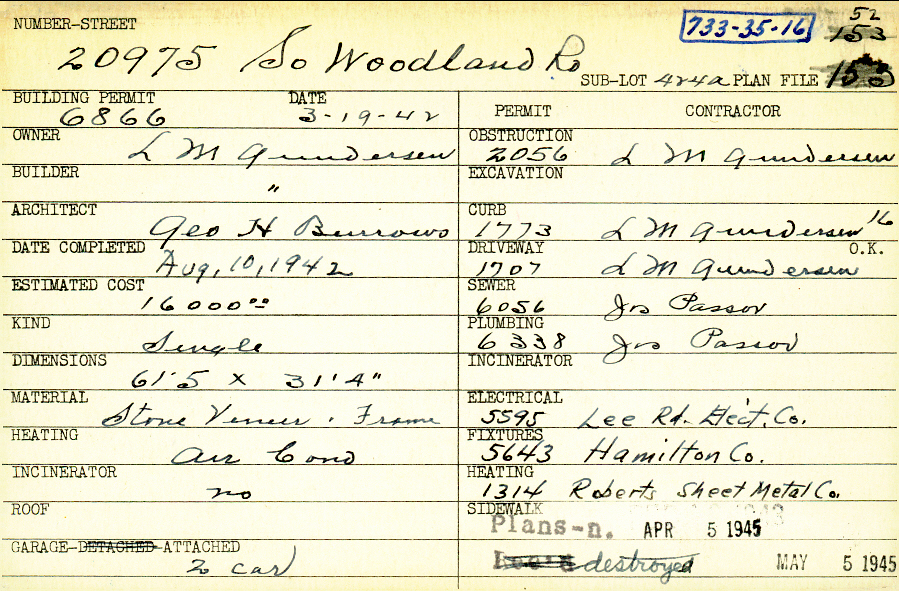 NUMBER-STREET
733-35-16
52
153
20975 So Woodland Rd
SUB-LOT 424a PLAN FILE 153
BUILDING PERMIT DATE
6866 3-19-42
PERMIT CONTRACTOR
OWNER
L M Gundersen
OBSTRUCTION
2056 L M Gundersen
BUILDER
"
EXCAVATION
ARCHITECT
Geo H Burrows
CURB
1773 L M Gundersen 16
DATE COMPLETED
Aug, 10, 1942
DRIVEWAY O.K.
1707 L M Gundersen
ESTIMATED COST
16000⁰⁰
SEWER
6056 Jos Passov
KIND
Single
PLUMBING
6338 Jos Passov
DIMENSIONS
61'5 x 31'4"
INCINERATOR
MATERIAL
Stone Veneer & Frame
ELECTRICAL
5595 Lee Rd. Elect. Co.
HEATING
Air Cond
FIXTURES
5643 Hamilton Co.
INCINERATOR
no
HEATING
1314 Roberts Sheet Metal Co.
ROOF
SIDEWALK
Plans-n. APR 5 1945
GARAGE-DETACHED-ATTACHED
2 car
destroyed MAY 5 1945